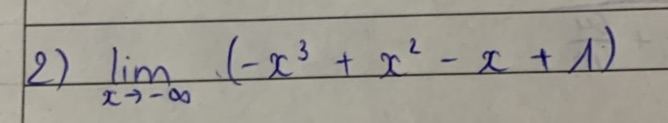 2) lim x→-∞ (-x³ + x² - x + 1)